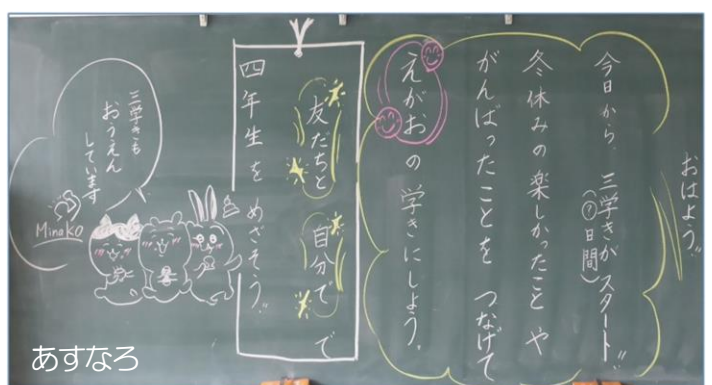 おはよう!!
今日から 三学きがスタート!!
(?日間)
冬休みの楽しかったことや
がんばったことを つなげて
えがおの学きにしよう。
友だちと 自分でで
四年生をめざそう!!
三学きも
おうえん
しています
Minako
あすなろ